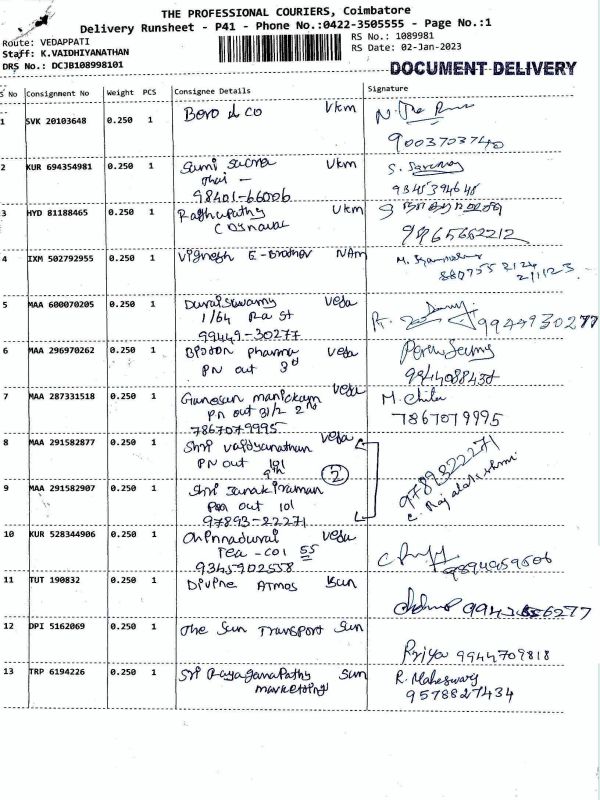 THE PROFESSIONAL COURIERS, Coimbatore
Delivery Runsheet - P41 - Phone No.:0422-3505555 - Page No.:1
Route: VEDAPPATI
RS No.: 1089981
Staff: K.VAIDHIYANATHAN
RS Date: 02-Jan-2023
DRS No.: DCJB108998101
DOCUMENT DELIVERY
S No Consignment No Weight PCS Consignee Details Signature
1 SVK 20103648 0.250 1 & co Vkm
9003703740
2 KUR 694354981 0.250 1 Vkm S.
98401-66006 9345394648
3 HYD 81188465 0.250 1 Raghupathy Vkm
9965662212
4 IXM 502792955 0.250 1 Vignesh E-Brother NAm M.
2/1/23
5 MAA 600070205 0.250 1 Duraiswamy Veda
1/64 Ra St
99449-30277 9944930277
6 MAA 296970262 0.250 1 pharma Veda
PN out 3rd 9944088438
7 MAA 287331518 0.250 1 Ganesan manickam Veda M. Chitra
PN out 31/2 2nd 7867079995
7867079995
8 MAA 291582877 0.250 1 Shri vaidyanathan Veda
PN out 101 9789322271
9 MAA 291582907 0.250 1 Shri Janakiraman 2 C. Rajalakshmi
out 101
97893-22271
10 KUR 528344906 0.250 1 Chinnadurai Veda
Tea - 55
9345902558
11 TUT 190832 0.250 1 Divine ATMOS
12 DPI 5162069 0.250 1 The Sun TRANSPORT Sun
Priya 9944709818
13 TRP 6194226 0.250 1 Sri Rayaganapathy Sun R. Maheswary
marketing 9578827434